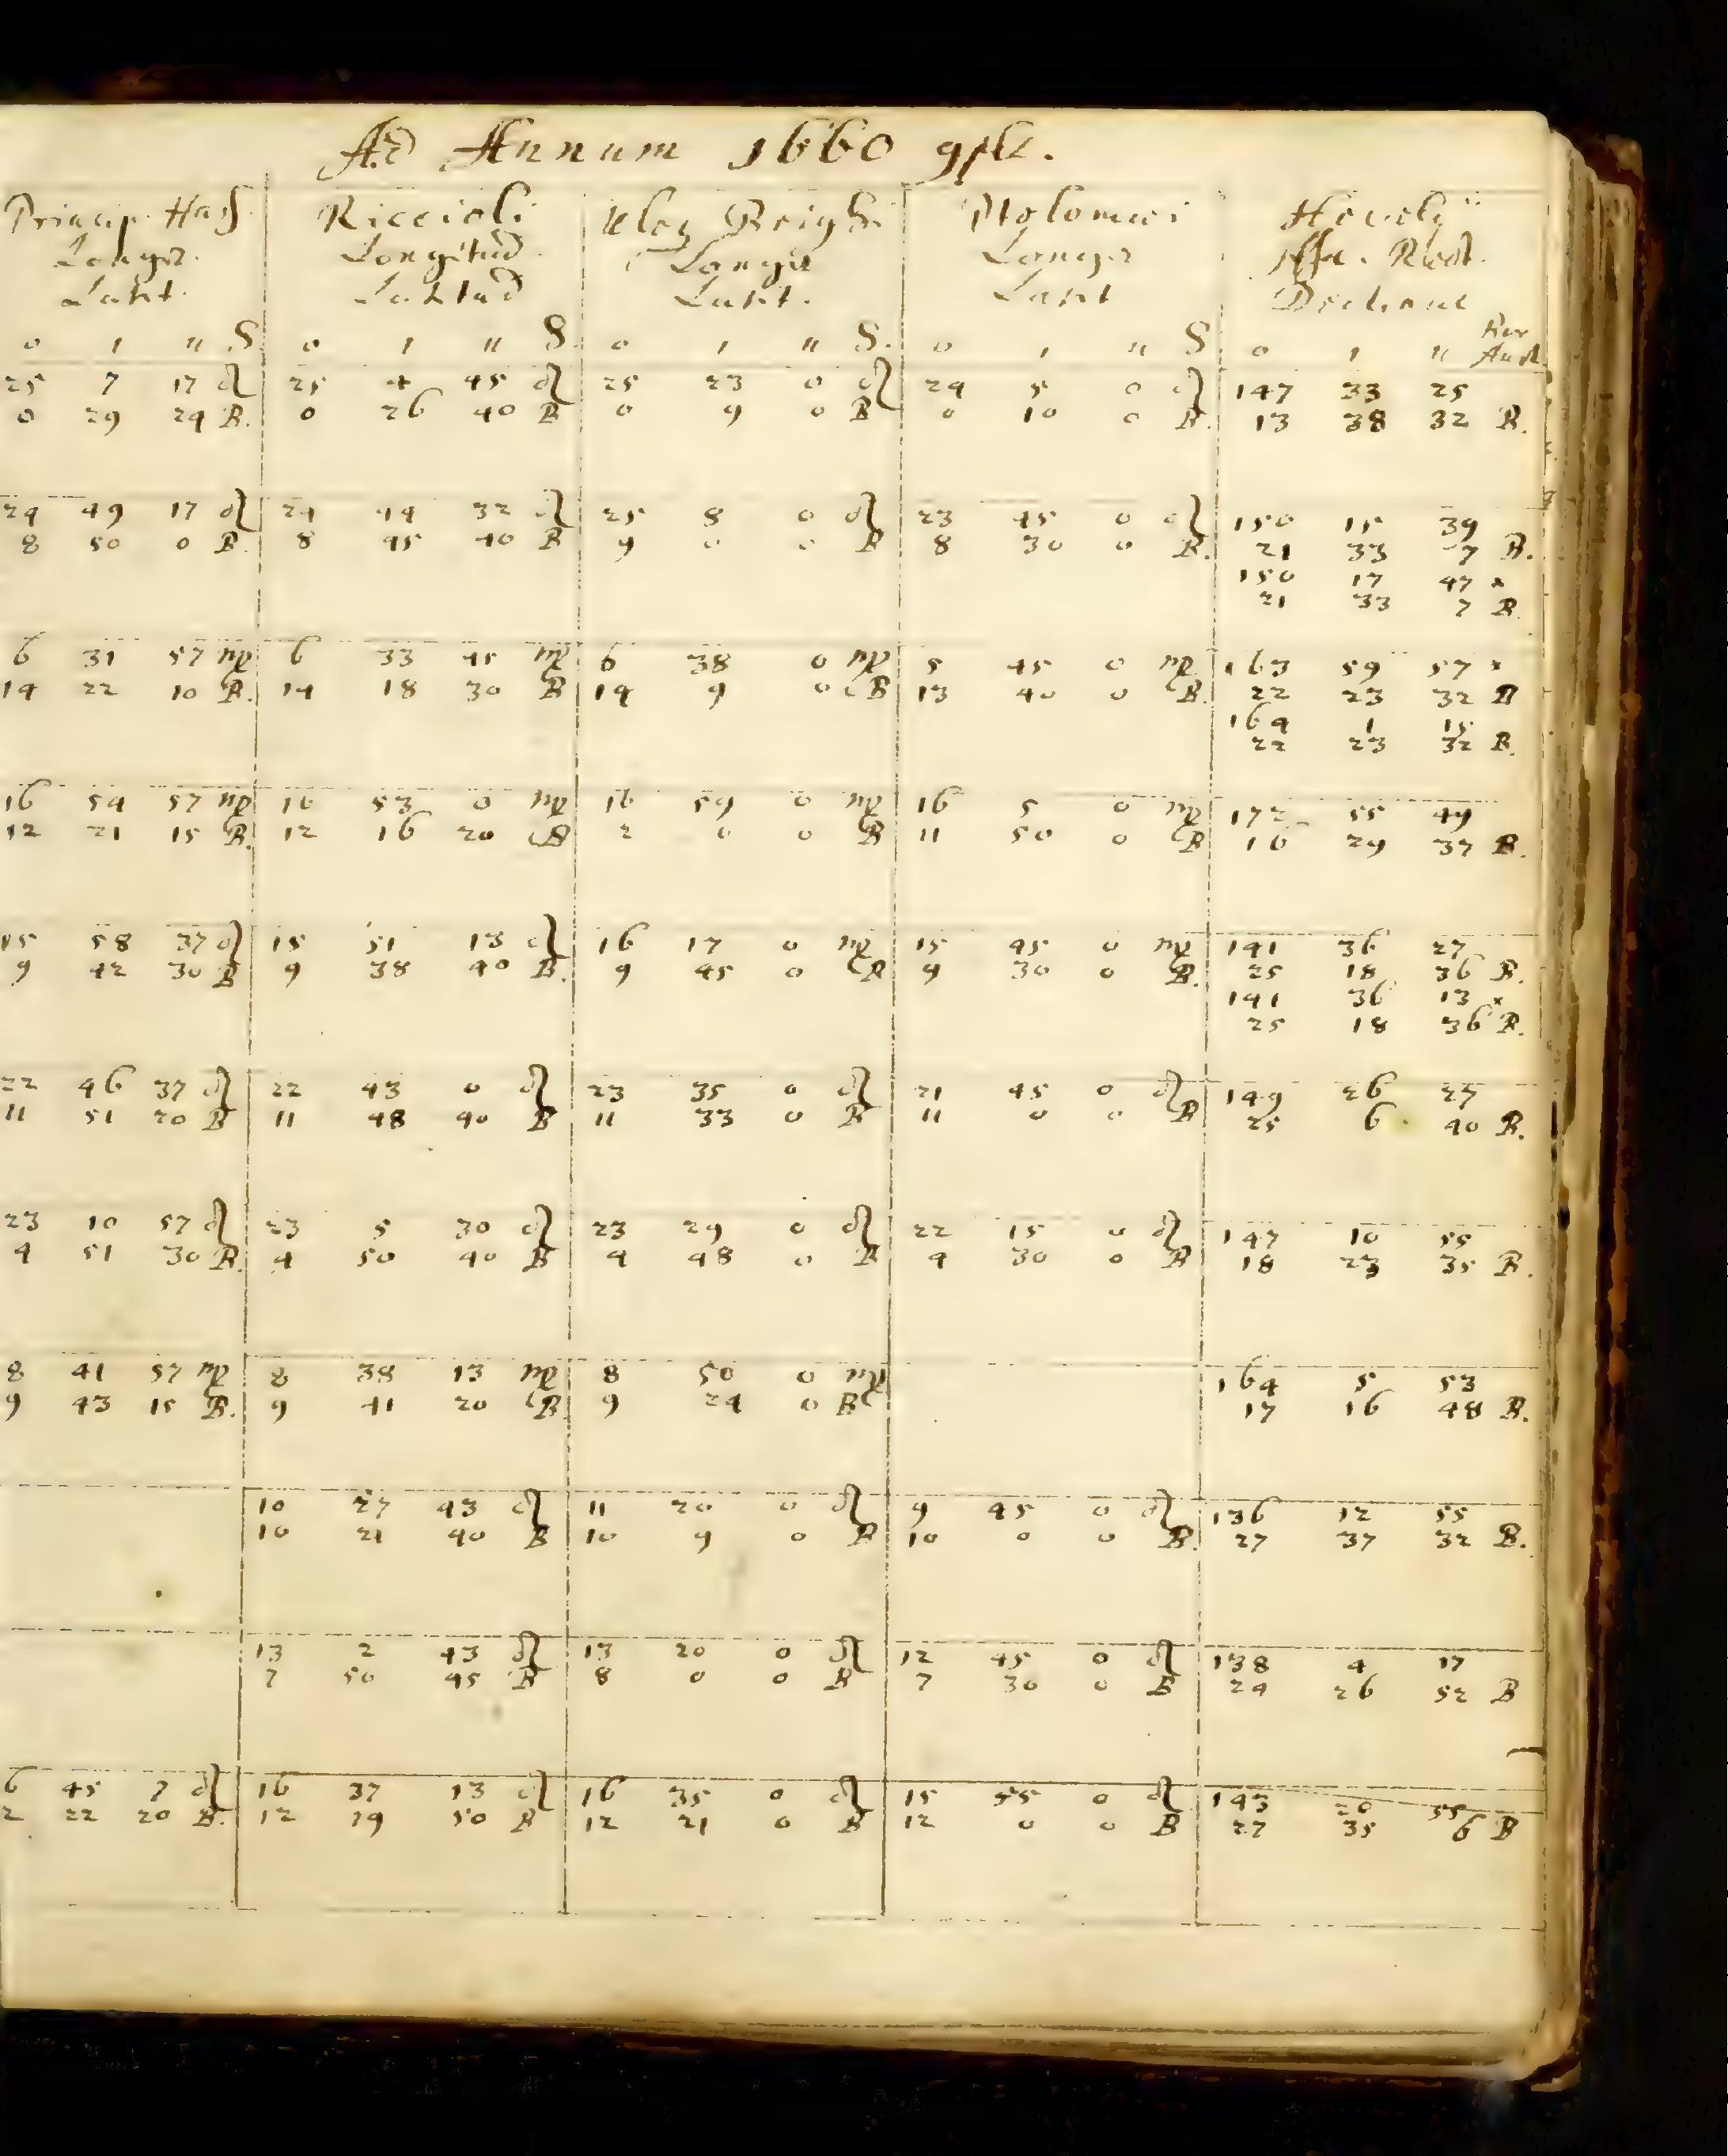 Ad Annum 1660 cplt.
Princip. Hass. Riccioli Uleg Beighi Ptolomaei Hevelÿ
Longit. Longitud. Longit Longit Asce. Rect.
Latit. Latitud Latit. Latit Declinat
Bor
0 ı ıı S 0 ı ıı S. 0 ı ıı S. 0 ı ıı S 0 ı ıı Aust.
25 7 17 ♌ 25 4 45 ♌ 25 23 0 ♌ 24 5 0 ♌ 147 33 25
0 29 24 B. 0 26 40 B 0 9 0 B 0 10 0 B. 13 38 32 B.
24 49 17 ♌ 24 44 32 ♌ 25 8 0 ♌ 23 45 0 ♌ 150 15 39
8 50 0 B. 8 45 40 B 9 0 0 B 8 30 0 B. 21 33 7 B.
150 17 47 *
21 33 7 B
6 31 57 ♍ 6 33 45 ♍ 6 38 0 ♍ 5 45 0 ♍ 163 59 57 *
14 22 10 B. 14 18 30 B 14 9 0 B 13 40 0 B. 22 23 32 B
164 1 15
22 23 32 B.
16 54 57 ♍ 16 53 0 ♍ 16 59 0 ♍ 16 5 0 ♍ 172 55 49
12 21 15 B. 12 16 20 B 2 0 0 B 11 50 0 B 16 29 37 B.
15 58 37 ♌ 15 51 13 ♌ 16 17 0 ♍ 15 45 0 ♍ 141 36 27
9 42 30 B 9 38 40 B. 9 45 0 B 9 30 0 B. 25 18 36 B.
141 36 13 *
25 18 36 B.
22 46 37 ♌ 22 43 0 ♌ 23 35 0 ♌ 21 45 0 ♌ 149 26 27
11 51 20 B 11 48 40 B 11 33 0 B 11 0 0 B 25 6 40 B.
23 10 57 ♌ 23 5 30 ♌ 23 29 0 ♌ 22 15 0 ♌ 147 10 55
4 51 30 B. 4 50 40 B 4 48 0 B 4 30 0 B 18 23 35 B.
8 41 57 ♍ 8 38 13 ♍ 8 50 0 ♍ 164 5 53
9 43 15 B. 9 41 20 B. 9 24 0 B 17 16 48 B.
10 27 43 ♌ 11 20 0 ♌ 9 45 0 ♌ 136 12 55
10 21 40 B 10 9 0 B 10 0 0 B. 27 37 32 B.
13 2 43 ♌ 13 20 0 ♌ 12 45 0 ♌ 138 4 17
7 50 45 B 8 0 0 B 7 30 0 B 24 26 52 B
6 45 7 ♌ 16 37 13 ♌ 16 35 0 ♌ 15 55 0 ♌ 143 20 55
2 22 20 B. 12 19 50 B 12 21 0 B 12 0 0 B 27 35 6 B